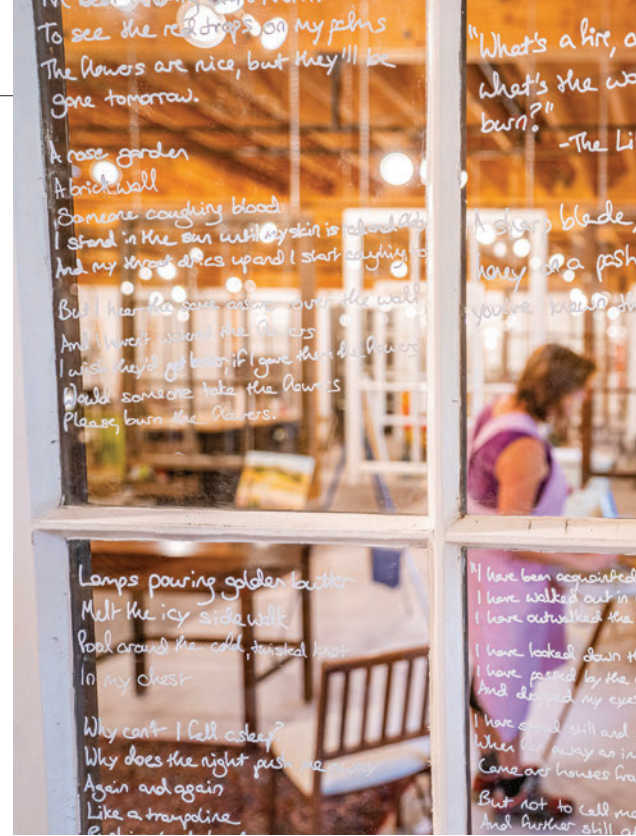 To see the red drops on my palms
The flowers are nice, but they'll be
gone tomorrow.
A rose garden
A brick wall
Someone coughing blood
I stand in the sun until my skin is
And my throat dries up and I start coughing
But I hear the same over the wall
And I haven't watered the flowers
I wish they'd get better, if I gave them the flowers
Would someone take the flowers
Please, burn the flowers.
"What's a fire, a
what's the wo
burn?"
-The Li
A sharp blade,
honey on a
Lamps pouring golden butter
Melt the icy sidewalk
Pool around the cold, twisted knot
In my chest
Why can't I fall asleep?
Why does the night push me away
Again and again
Like a trampoline
"I have been acquainted
I have walked out in
I have outwalked the
I have looked down th
I have passed by the
And dropped my eye
I have stood still and
When far away an in
Came over houses fro
But not to call me
And further still